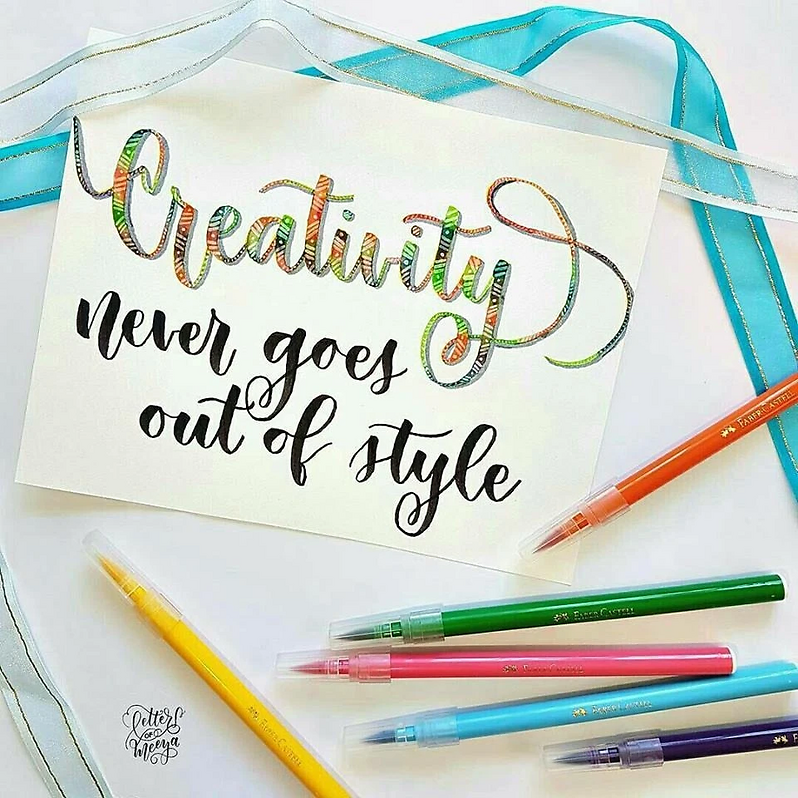 Creativity
never goes
out of style
FABER CASTELL
FABER CASTELL
FABER CASTELL
FABER CASTELL
FABER CASTELL
letters
of
meeya